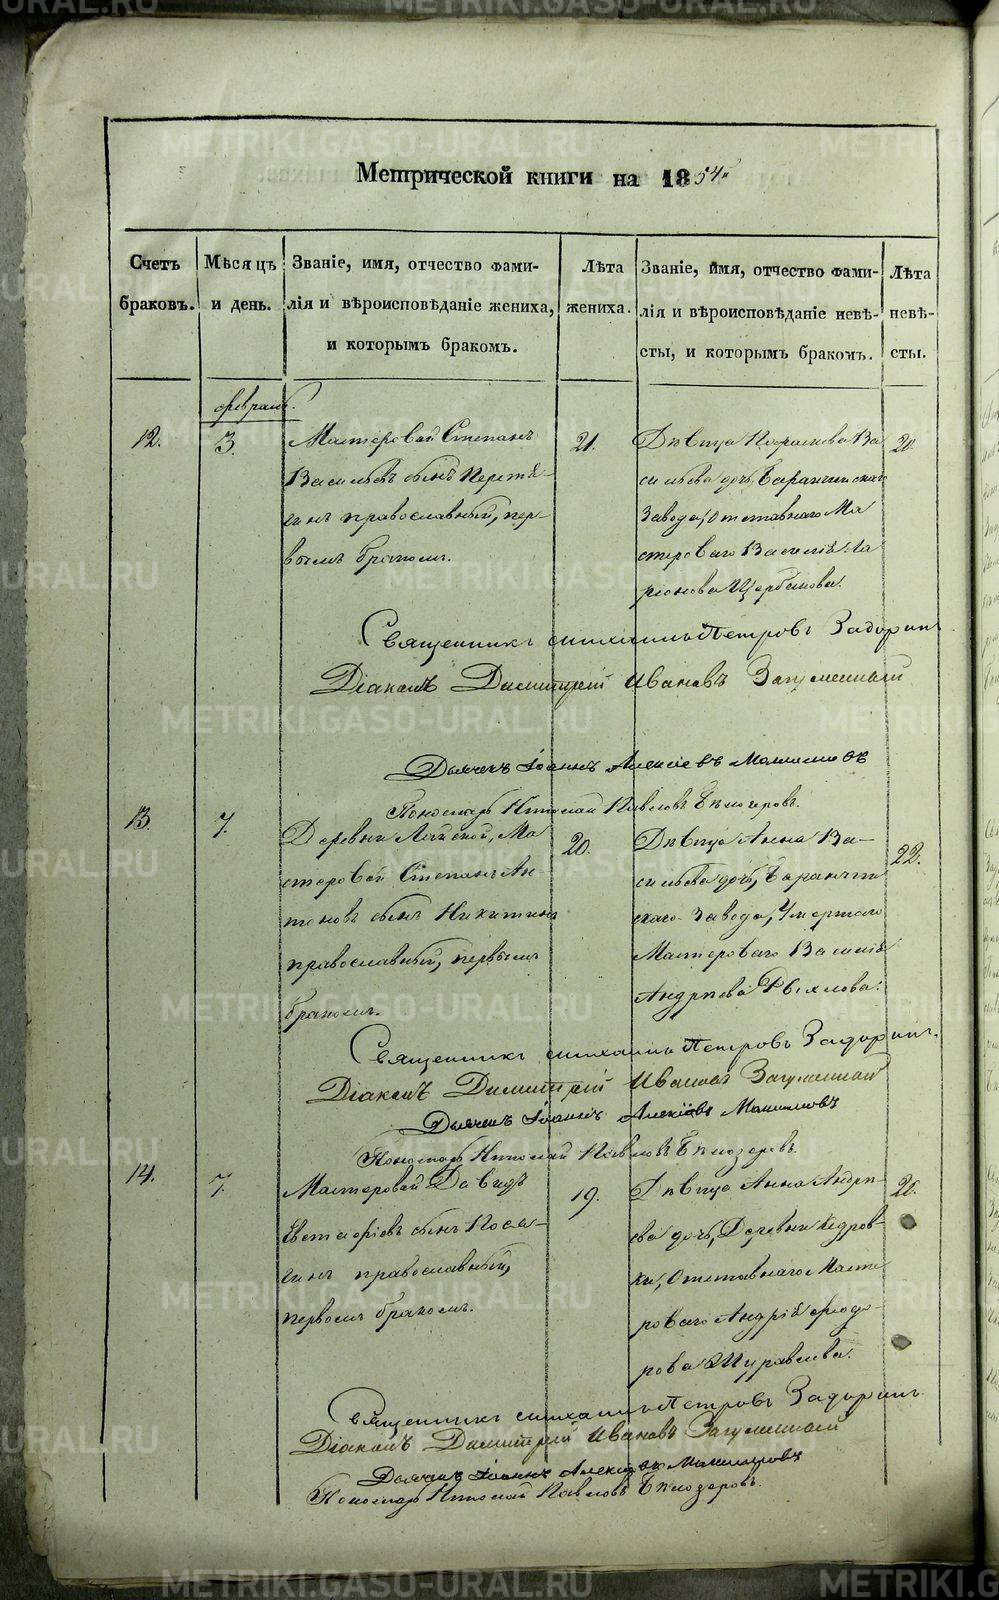 METRIKI.GASO-URAL.RU
Метрической книги на 1854й
Счетъ браковъ.
Мѣсяцъ и день.
Званіе, имя, отчество фами-
лія и вѣроисповѣданіе жениха,
и которымъ бракомъ.
Лѣта жениха.
Званіе, имя, отчество фами-
лія и вѣроисповѣданіе невѣ-
сты, и которымъ бракомъ.
Лѣта невѣ-
сты.
февраль.
12.
3.
Мастеровой Степанъ
Васильевъ сынъ
гинъ православный, пер-
вымъ бракомъ.
21.
Дѣвица Парасковья Ва
сильева дочь, Баранчинскаго
Завода, Отставнаго Ма
стероваго Василья Ла
ріонова Щербакова.
20.
Священникъ Михаилъ Петровъ Задоринъ
Діаконъ Димитрій Ивановъ Загуменный
Дьячекъ Іоаннъ Алексіевъ
Пономарь Николай Павловъ Бѣлозеровъ.
13.
7.
Деревни Лайской, Ма
стеровой Степанъ Ан
тоновъ сынъ Никитинъ
православный, первымъ
бракомъ.
20.
Дѣвица Анна Ва-
сильева дочь, Баранчин
скаго Завода, Умершаго
Мастероваго Василья
Андреева Рыхлова.
22.
Священникъ Михаилъ Петровъ Задоринъ.
Діаконъ Димитрій Ивановъ Загуменный
Дьячекъ Іоаннъ Алексіевъ
Пономарь Николай Павловъ Бѣлозеровъ.
14.
7.
Мастеровой Давидъ
Евстафіевъ сынъ Поса-
гинъ православный,
первымъ бракомъ.
19.
Дѣвица Анна Андре-
ева дочь, Деревни Кедров-
ки, Отставнаго Масте
роваго Андрея Федо-
рова Журавлева.
20.
Священникъ Михаилъ Петровъ Задоринъ
Діаконъ Димитрій Ивановъ Загуменный
Дьячекъ Іоаннъ Алексіевъ
Пономарь Николай Павловъ Бѣлозеровъ.